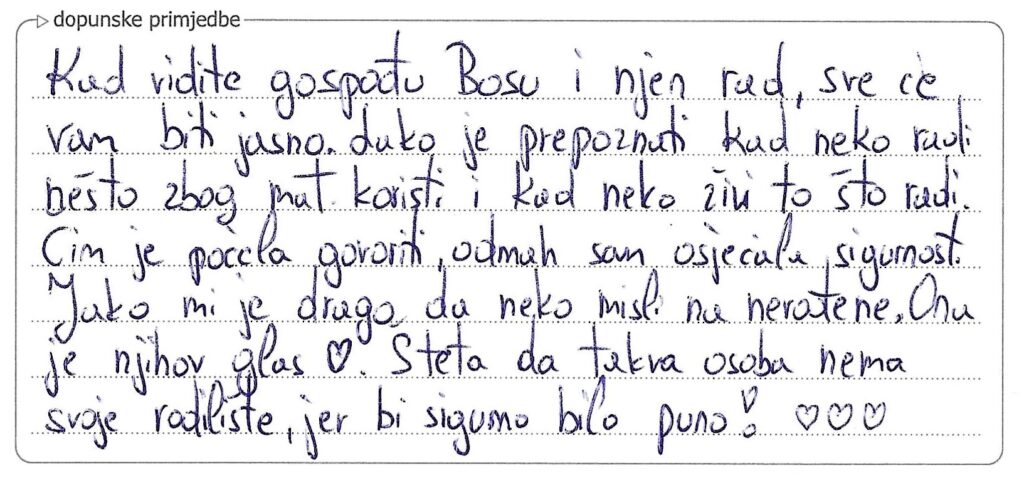 dopunske primjedbe
Kad vidite gospođu Bosu i njen rad, sve će
vam biti jasno. Lako je prepoznati kad neko radi
nešto zbog mat. koristi i kad neko živi to što radi.
Čim je počela govoriti, odmah sam osjećala sigurnost.
Jako mi je drago da neko misli na nerođene. Ona
je njihov glas ♡. Šteta da takva osoba nema
svoje rodilište, jer bi sigurno bilo puno! ♡♡♡